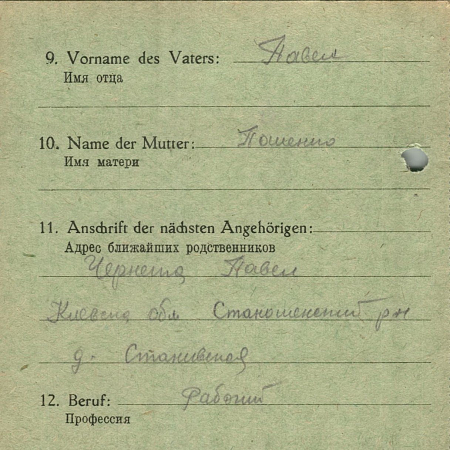 9. Vorname des Vaters: Павел
Имя отца
10. Name der Mutter: Пошенко
Имя матери
11. Anschrift der nächsten Angehörigen:
Адрес ближайших родственников
Павел
обл рн
д.
12. Beruf: Рабочий
Профессия